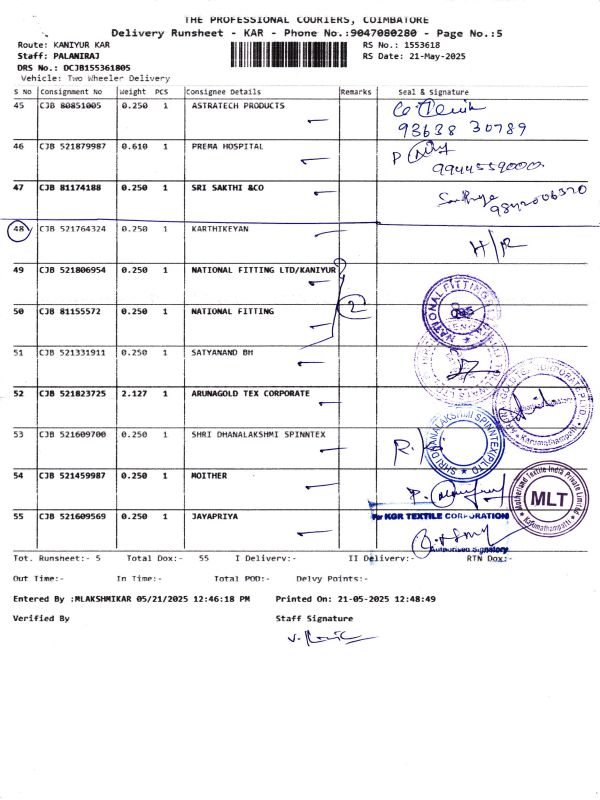 THE PROFESSIONAL COURIERS, COIMBATORE
Delivery Runsheet - KAR - Phone No.:9047080280 - Page No.:5
Route: KANIYUR KAR
RS No.: 1553618
Staff: PALANIRAJ
RS Date: 21-May-2025
DRS No.: DCJB155361805
Vehicle: Two Wheeler Delivery
S No Consignment No Weight PCS Consignee Details Remarks Seal & Signature
45 CJB 80851005 0.250 1 ASTRATECH PRODUCTS
93638 30789
46 CJB 521879987 0.610 1 PREMA HOSPITAL
9944559000
47 CJB 81174188 0.250 1 SRI SAKTHI &CO
9842006320
48 CJB 521764324 0.250 1 KARTHIKEYAN
H/R
49 CJB 521806954 0.250 1 NATIONAL FITTING LTD/KANIYUR
50 CJB 81155572 0.250 1 NATIONAL FITTING
2
51 CJB 521331911 0.250 1 SATYANAND BH
52 CJB 521823725 2.127 1 ARUNAGOLD TEX CORPORATE
53 CJB 521609700 0.250 1 SHRI DHANALAKSHMI SPINNTEX
SHRI DHANALAKSHMI SPINNTEX(P)LTD
54 CJB 521459987 0.250 1 MOITHER
Motherland Textile India Private Limited
MLT
55 CJB 521609569 0.250 1 JAYAPRIYA
For KGR TEXTILE CORPORATION
Authorised Signatory
Tot. Runsheet:- 5 Total Dox:- 55 I Delivery:- II Delivery:- RTN Dox:-
Out Time:- In Time:- Total POD:- Delvy Points:-
Entered By :MLAKSHMIKAR 05/21/2025 12:46:18 PM Printed On: 21-05-2025 12:48:49
Verified By Staff Signature